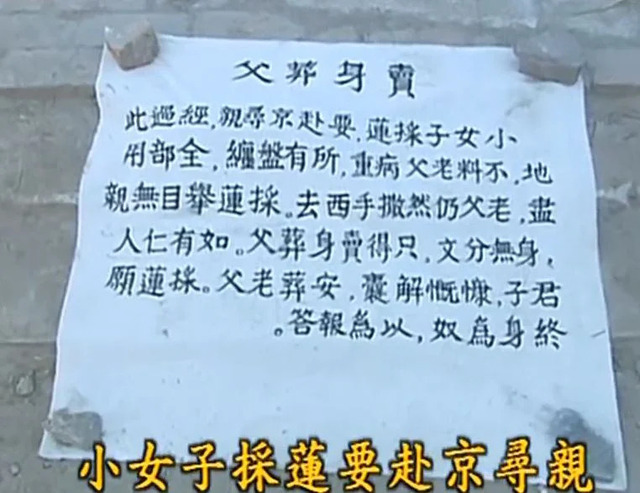 賣身葬父
小女子採蓮,要赴京尋親,經過此
地,不料老父病重,所有盤纏,全部用
盡,老父仍然撒手西去。採蓮舉目無親
,身無分文,只得賣身葬父。如有仁人
君子,慷慨解囊,安葬老父。採蓮願
終身為奴,以為報答。
小女子採蓮要赴京尋親